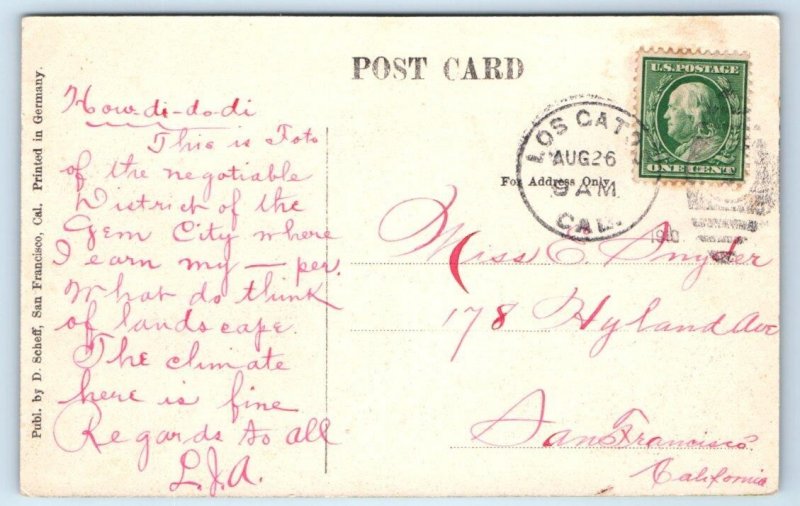 POST CARD
Publ. by D. Scheff, San Francisco, Cal. Printed in Germany.
How-di-do-di
This is Foto
of the negotiable
District of the
Gem City where
I earn my — per.
What do think
of landscape.
The climate
here is fine
Regards to all
L.J.A.
U.S. POSTAGE
ONE CENT
LOS GATOS
AUG 26
9 AM
CAL.
1910
For Address Only
Miss E Snyder
178 Hyland Ave
San Francisco
California